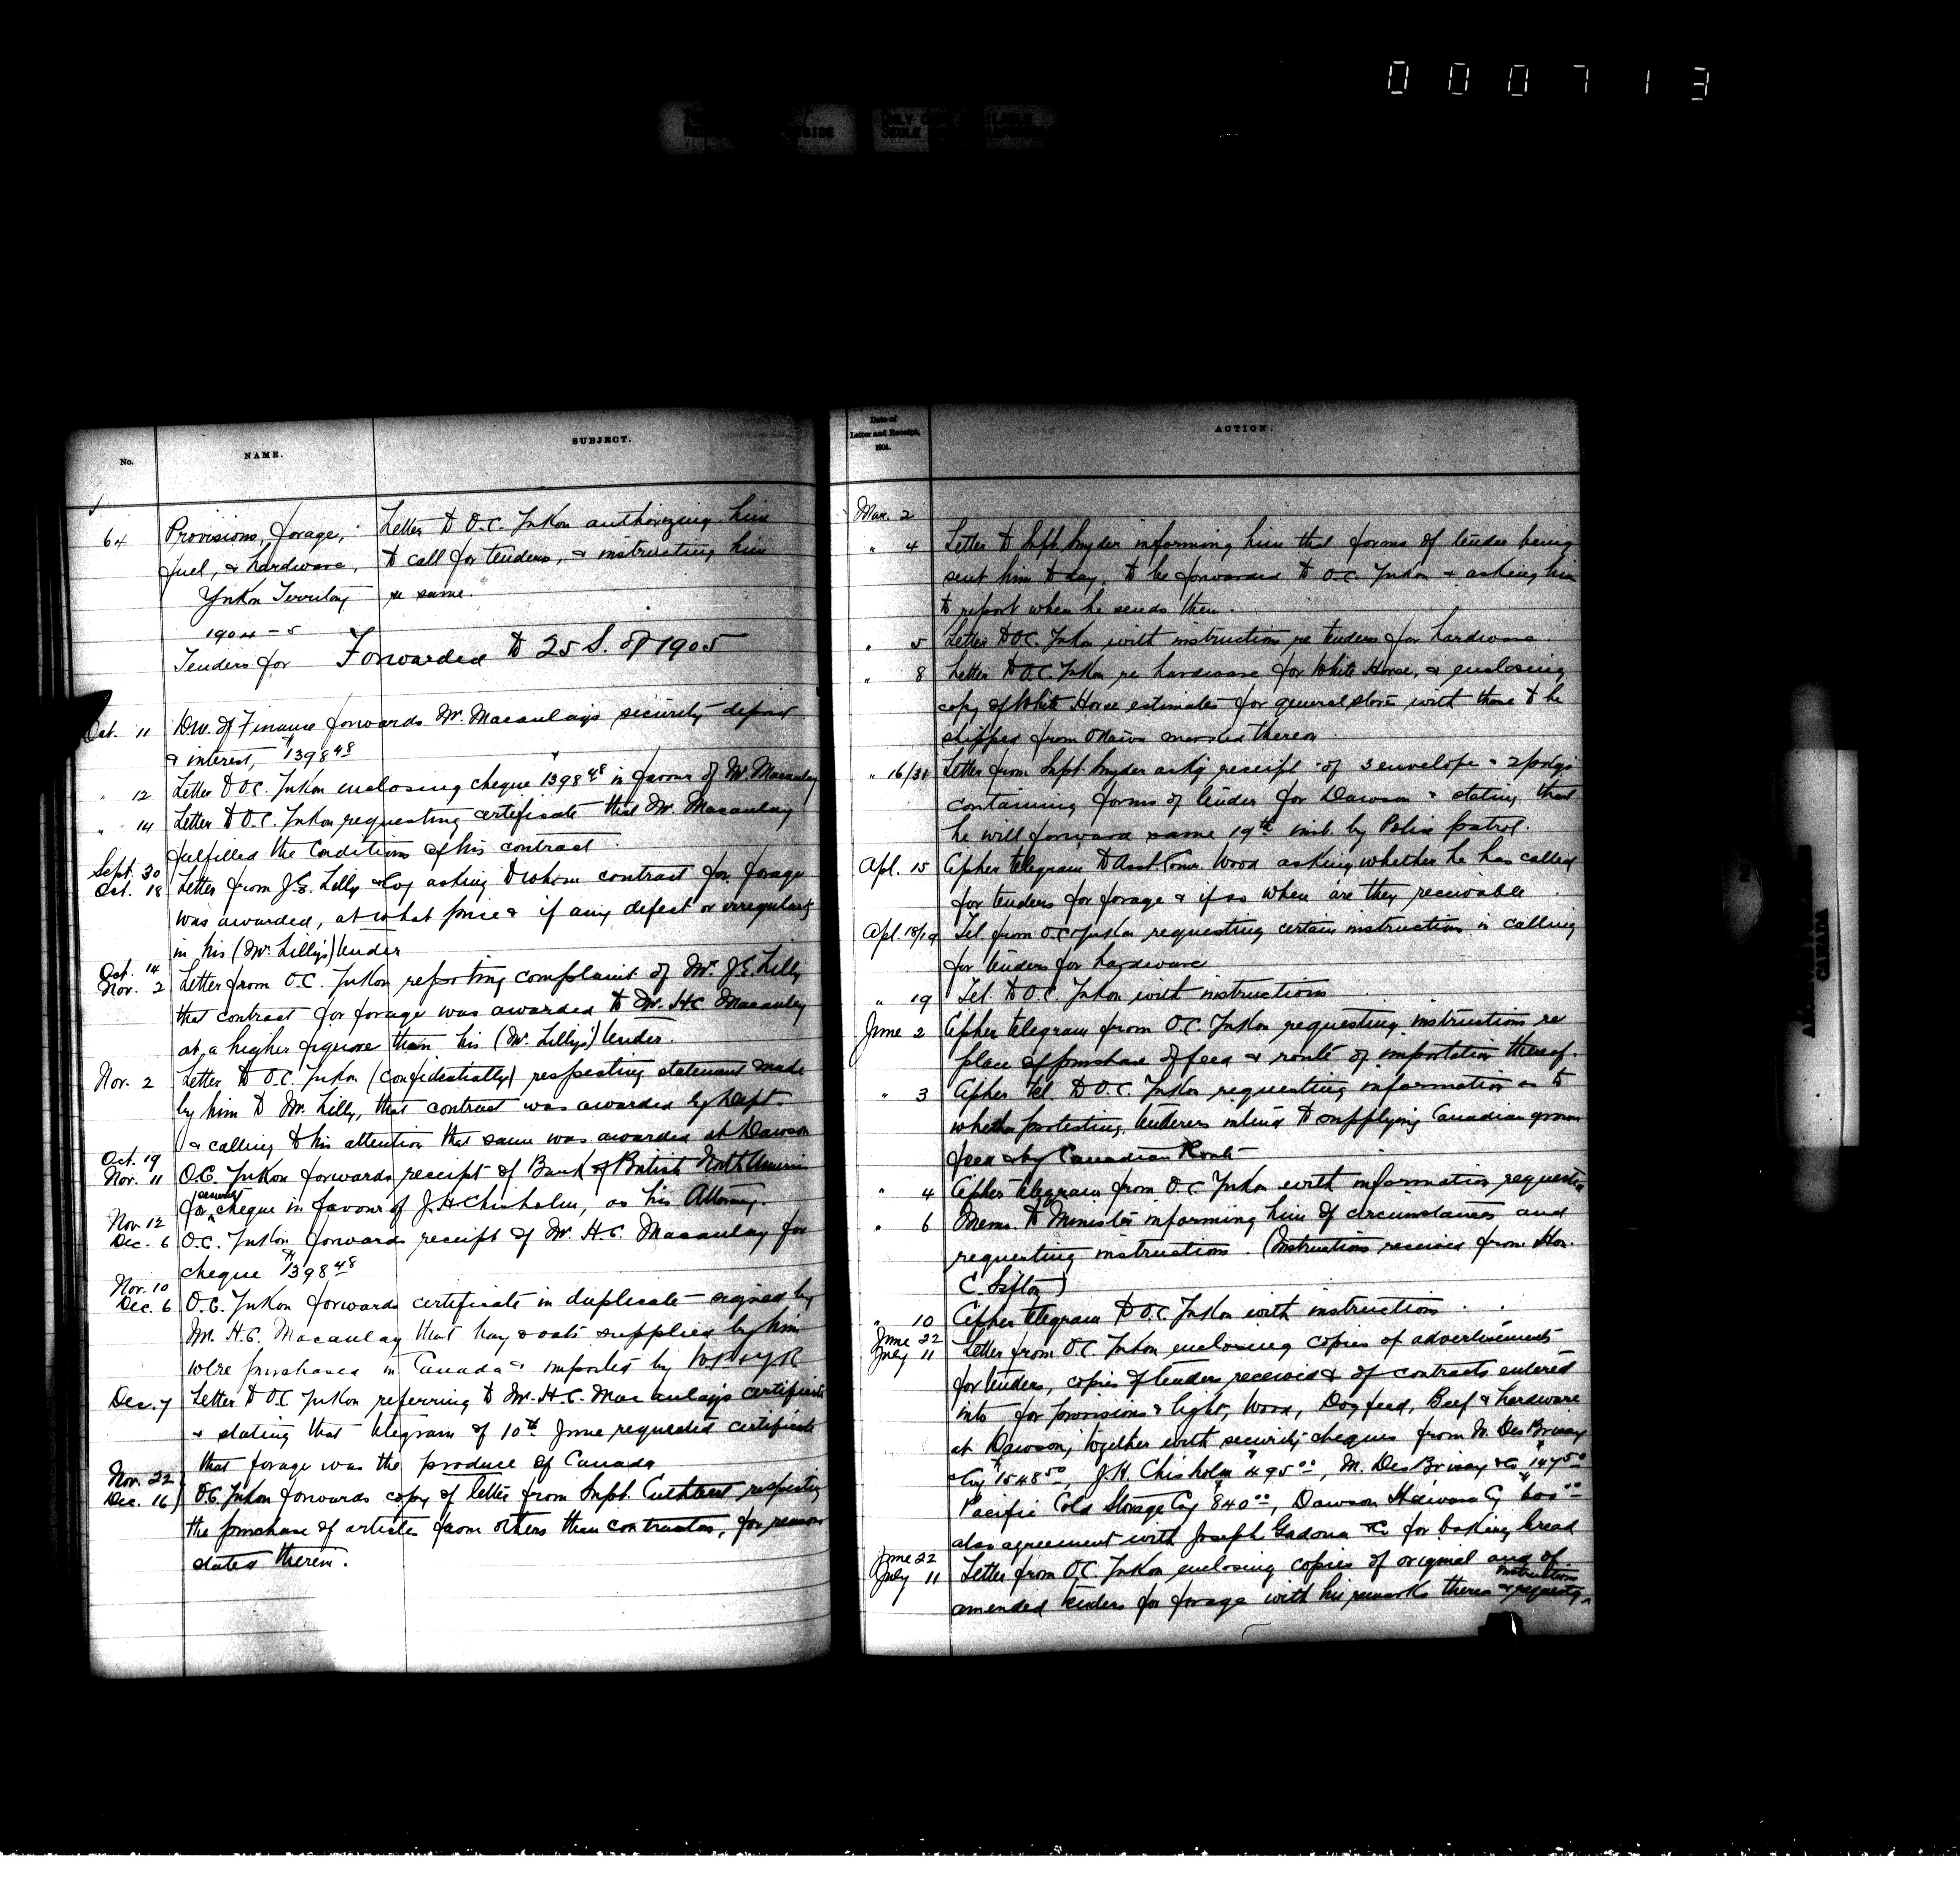 000713
No.
NAME.
SUBJECT.
64
Provisions, forage,
fuel, & hardware,
Yukon Territory
1904-5
Tenders for
Letter to O.C. Yukon authorizing him
to call for tenders, & instructing him
re same.
Forwarded to 25 S. of 1905
Oct. 11 of Finance forwards Mr. Macaulay's security deposit
& interest, $1398 48
" 12 Letter to O.C. Yukon enclosing cheque $1398 48 in favour of Mr. Macaulay
" 14 Letter to O.C. Yukon requesting certificate that Mr. Macaulay
fulfilled the conditions of his contract.
Sept. 30
Oct. 18 Letter from J.E. Lilly & Coy asking to whom contract for forage
was awarded, at what price & if any defect or irregularity
in his (Mr. Lilly's) tender
Oct. 14
Nov. 2 Letter from O.C. Yukon reporting complaint of Mr. J.E. Lilly
that contract for forage was awarded to Mr. H.C. Macaulay
at a higher figure than his (Mr. Lilly's) tender.
Nov. 2 Letter to O.C. Yukon (confidentially) respecting statement made
by him to Mr. Lilly, that contract was awarded by Dept
& calling to his attention that same was awarded at Dawson
Oct. 19
Nov. 11 O.C. Yukon forwards receipt of Bank of British North America
for security cheque in favour of J.H. Chisholm, as his Attorney.
Nov. 12
Dec. 6 O.C. Yukon forwards receipt of Mr. H.C. Macaulay for
cheque $1398 48
Nov. 10
Dec. 6 O.C. Yukon forwards certificate in duplicate signed by
Mr. H.C. Macaulay that hay & oats supplied by him
were purchased in Canada & imported by W.P. & Y.R
Dec. 7 Letter to O.C. Yukon referring to Mr. H.C. Macaulay's certificate
& stating that telegram of 10th June requested certificate
that forage was the produce of Canada
Nov. 22
Dec. 16 O.C. Yukon forwards copy of letter from Supt. Cuthbert respecting
the purchase of articles from others than contractors, for reasons
stated therein.
Date of
Letter and Receipt,
1904.
ACTION.
Mar. 2
" 4 Letter to Supt. Snyder informing him that forms of tender being
sent him to day, to be forwarded to O.C. Yukon & asking him
to report when he sends them.
" 5 Letter to O.C. Yukon with instruction re tenders for hardware.
" 8 Letter to O.C. Yukon re hardware for White Horse, & enclosing
copy of White Horse estimates for general store with those to be
shipped from Ottawa thereon.
" 16/31 Letter from Supt. Snyder receipt of 3 envelope & 2 pkgs
containing forms of tender for Dawson & stating that
he will forward same 19th inst. by Police patrol.
Apl. 15 Cipher telegram to Asst. Comr. Wood asking whether he has called
for tenders for forage & if so when are they receivable
Apl. 18/19 Tel. from O.C. Yukon requesting certain instructions in calling
for tenders for hardware
" 19 Tel. to O.C. Yukon with instructions
June 2 Cipher telegram from O.C. Yukon requesting instructions re
place of purchase of feed & route of importation thereof.
" 3 Cipher tel. to O.C. Yukon requesting information as to
whether protesting tenderers intend to supplying Canadian grown
feed & by Canadian Route
" 4 Cipher telegram from O.C. Yukon with information requested
" 6 Memo. to Minister informing him of circumstances and
requesting instructions. (Instructions received from Hon.
C. Sifton)
" 10 Cipher telegram to O.C. Yukon with instructions.
June 22
July 11 Letter from O.C. Yukon enclosing copies of advertisements
for tenders, copies of tenders received & of contracts entered
into for provisions & light, Wood, Dog feed, Beef & hardware
at Dawson, together with security cheques from M. DesBrisay
& Coy $1548 50, J.H. Chisholm $495 00, M. DesBrisay & Co $147 50
Pacific Cold Storage Coy $840 00, Dawson Hdware Cy $600 00
also agreement with Joseph Gadoua & Co for baking bread
June 22
July 11 Letter from O.C. Yukon enclosing copies of original and of
amended tenders for forage with his remarks thereon & requesting instructions
CANADA